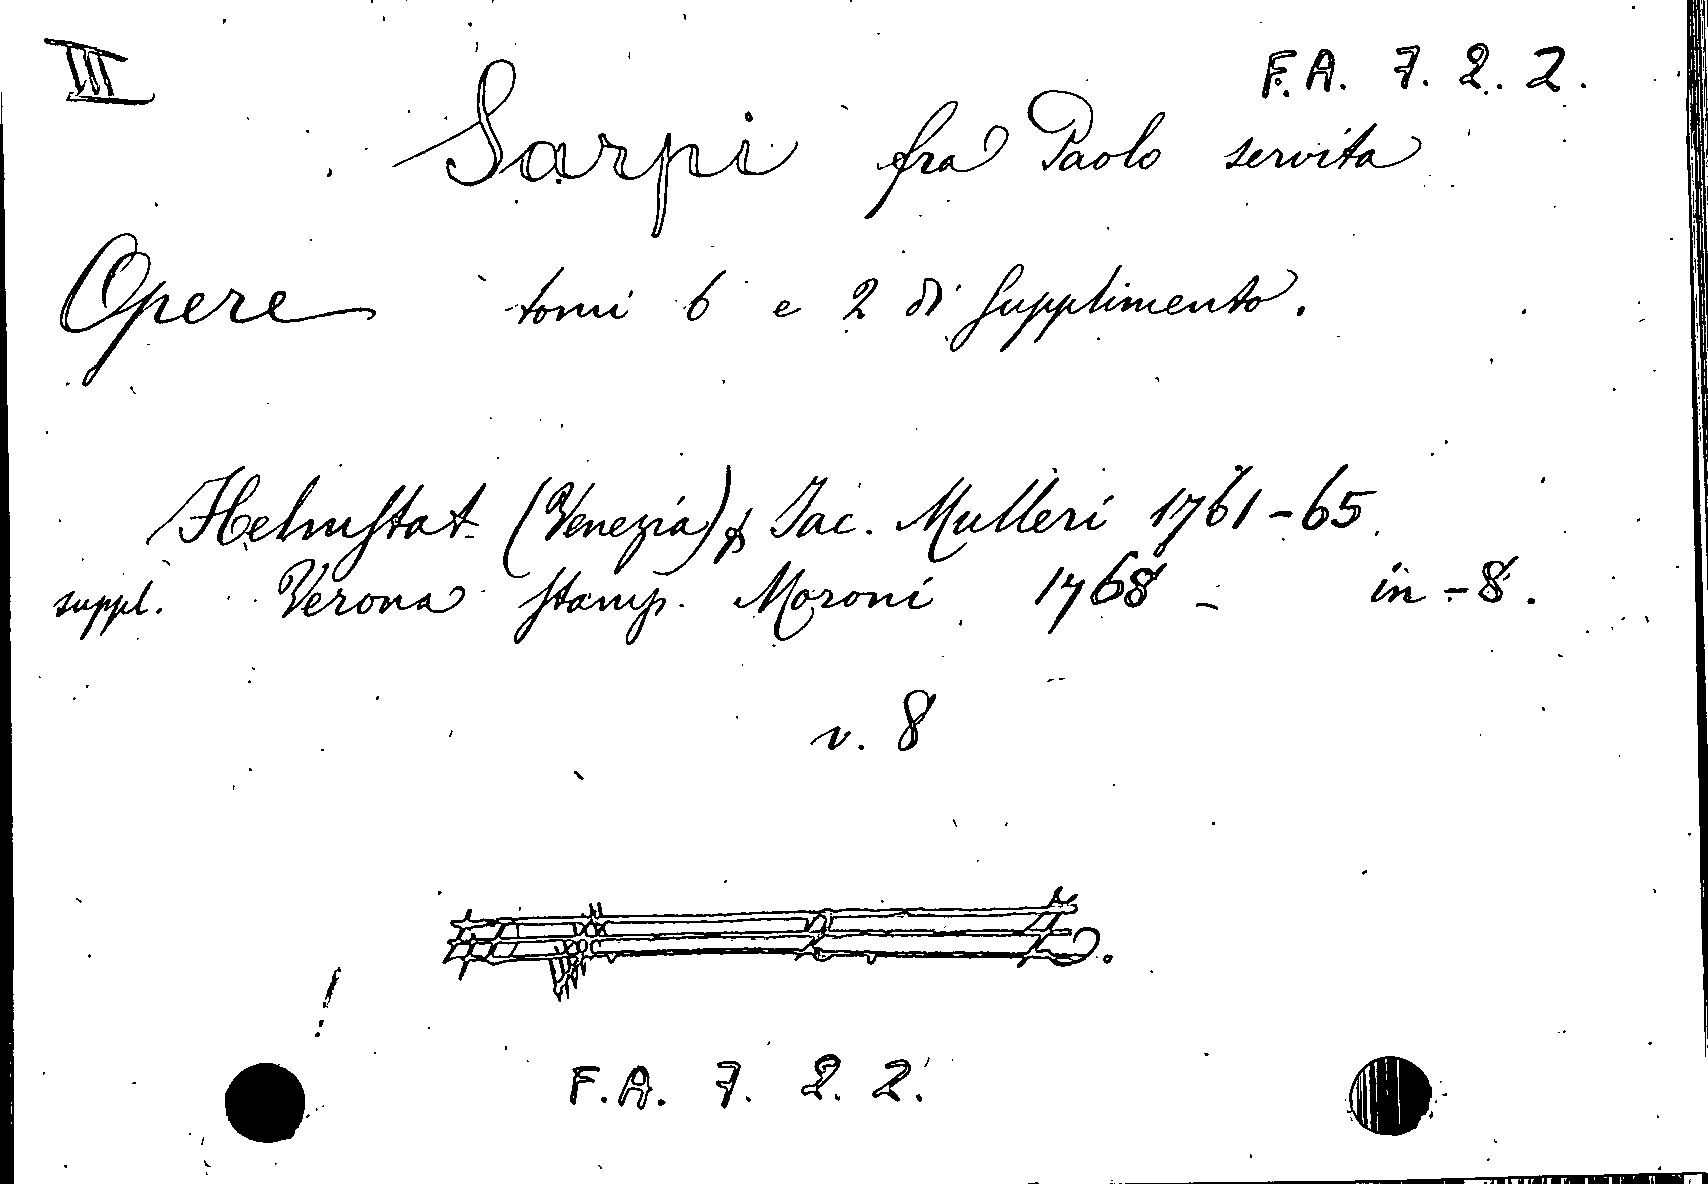 III
F.A. 7. 2. 2.
Sarpi fra Paolo servita
Opere tomi 6 e 2 di supplimento.
Helmstat (Venezia) p Jac. Mulleri 1761-65
suppl. Verona stamp. Moroni 1768 - in-8.
v. 8
F.A. 7. 2. 2.